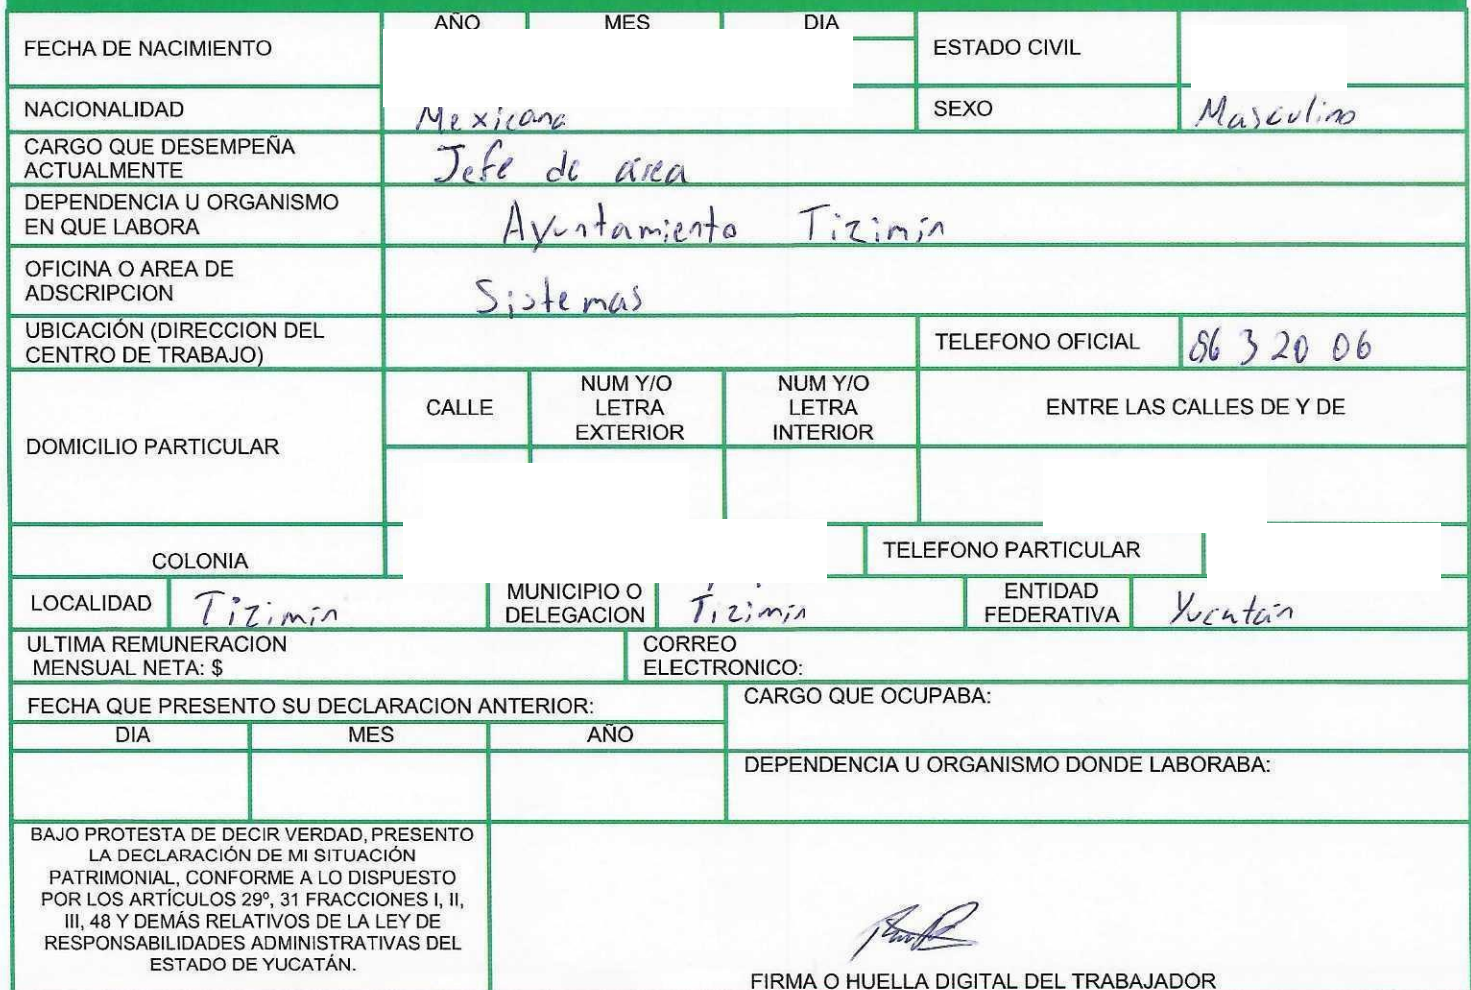 AÑO MES DIA
FECHA DE NACIMIENTO ESTADO CIVIL
NACIONALIDAD Mexicana SEXO Masculino
CARGO QUE DESEMPEÑA
ACTUALMENTE Jefe de área
DEPENDENCIA U ORGANISMO
EN QUE LABORA Ayuntamiento Tizimín
OFICINA O AREA DE
ADSCRIPCION Sistemas
UBICACIÓN (DIRECCION DEL
CENTRO DE TRABAJO) TELEFONO OFICIAL 86 3 20 06
DOMICILIO PARTICULAR
CALLE
NUM Y/O
LETRA
EXTERIOR
NUM Y/O
LETRA
INTERIOR
ENTRE LAS CALLES DE Y DE
COLONIA TELEFONO PARTICULAR
LOCALIDAD Tizimín
MUNICIPIO O
DELEGACION Tizimín
ENTIDAD
FEDERATIVA Yucatán
ULTIMA REMUNERACION
MENSUAL NETA: $
CORREO
ELECTRONICO:
FECHA QUE PRESENTO SU DECLARACION ANTERIOR:
DIA MES AÑO
CARGO QUE OCUPABA:
DEPENDENCIA U ORGANISMO DONDE LABORABA:
BAJO PROTESTA DE DECIR VERDAD, PRESENTO
LA DECLARACIÓN DE MI SITUACIÓN
PATRIMONIAL, CONFORME A LO DISPUESTO
POR LOS ARTÍCULOS 29º, 31 FRACCIONES I, II,
III, 48 Y DEMÁS RELATIVOS DE LA LEY DE
RESPONSABILIDADES ADMINISTRATIVAS DEL
ESTADO DE YUCATÁN.
FIRMA O HUELLA DIGITAL DEL TRABAJADOR